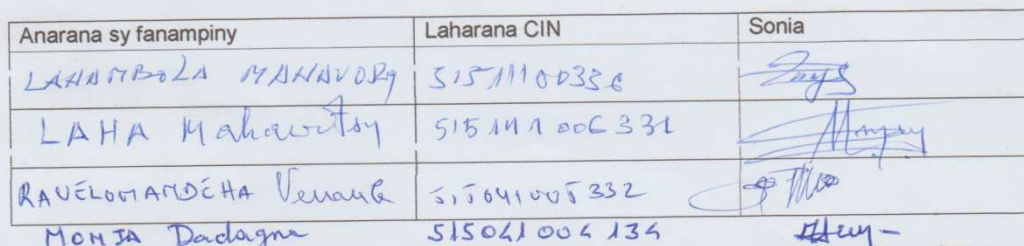 Anarana sy fanampiny Laharana CIN Sonia
LAHAMBOLA MAHAVORY 515111100336
LAHA Mahavitsy 515 111 006 331
RAVELOMANDEHA Venance 515041005332
MONJA Dadagne 515041 004 134